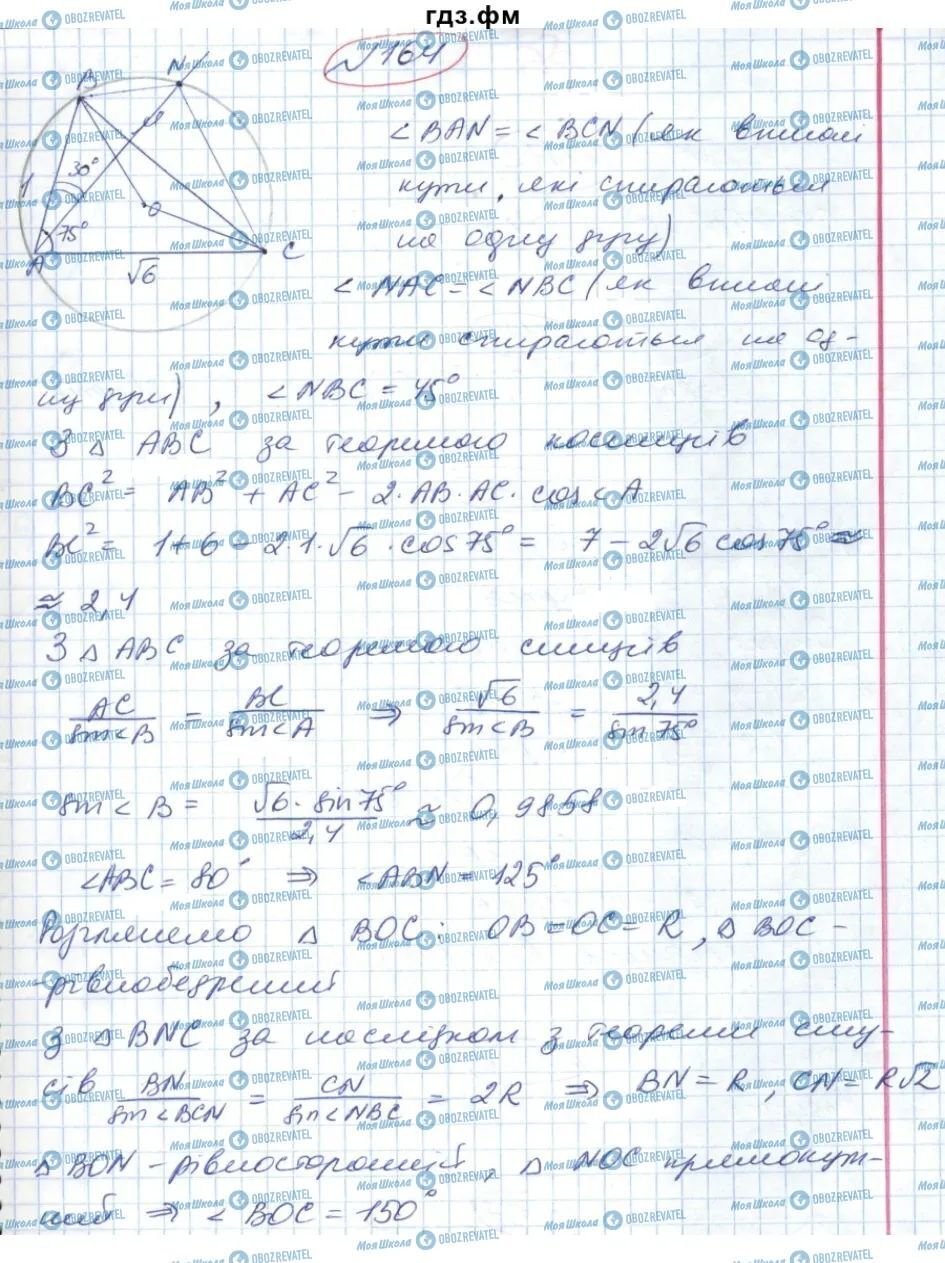 гдз.фм
№164
B N
30°
1
O
75°
A √6 C
∠BAN = ∠BCN (як вписані
кути, які спираються
на одну дугу)
∠NAC = ∠NBC (як вписані
кути спираються на од-
ну дугу), ∠NBC = 45°
З △ ABC за теоремою косинусів
BC² = AB² + AC² - 2·AB·AC·cos∠A
BC² = 1+6-2·1·√6·cos75° = 7-2√6 cos75° ≈
≈ 2,4
З △ ABC за теоремою синусів
AC/sin∠B = BC/sin∠A ⇒ √6/sin∠B = 2,4/sin75°
sin∠B = √6·sin75°/2,4 ≈ 0,9858
∠ABC = 80° ⇒ ∠ABN = 125°
Розглянемо △ BOC: OB=OC=R, △ BOC -
рівнобедрений
З △BNC за наслідком з теореми сину-
сів BN/sin∠BCN = CN/sin∠NBC = 2R ⇒ BN = R, CN = R√2
△ BON - рівносторонній, △ NOC прямокут-
ний ⇒ ∠BOC = 150°
МояШкола OBOZREVATEL